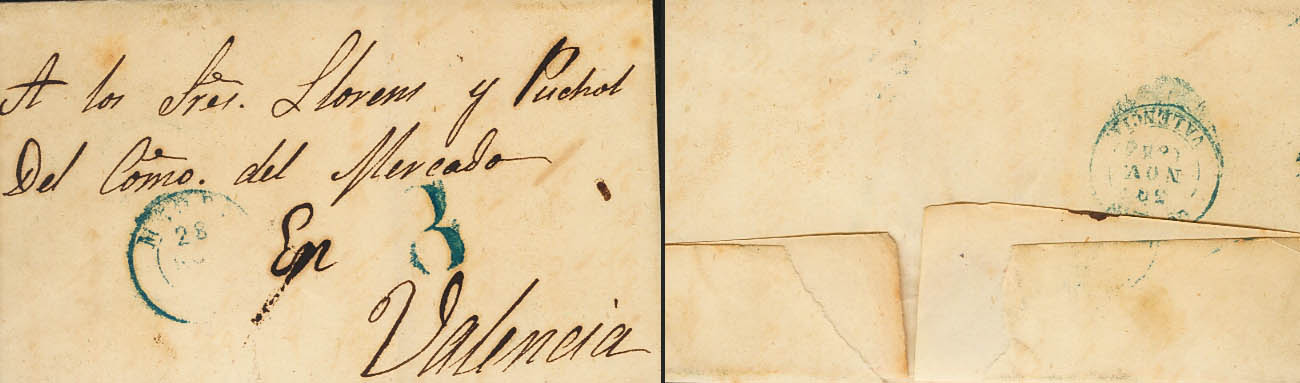 A los Sres. Llorens y Puchol
Del Cômo. del Mercado
28
En 3
Valencia
VALENCIA
NOV
30